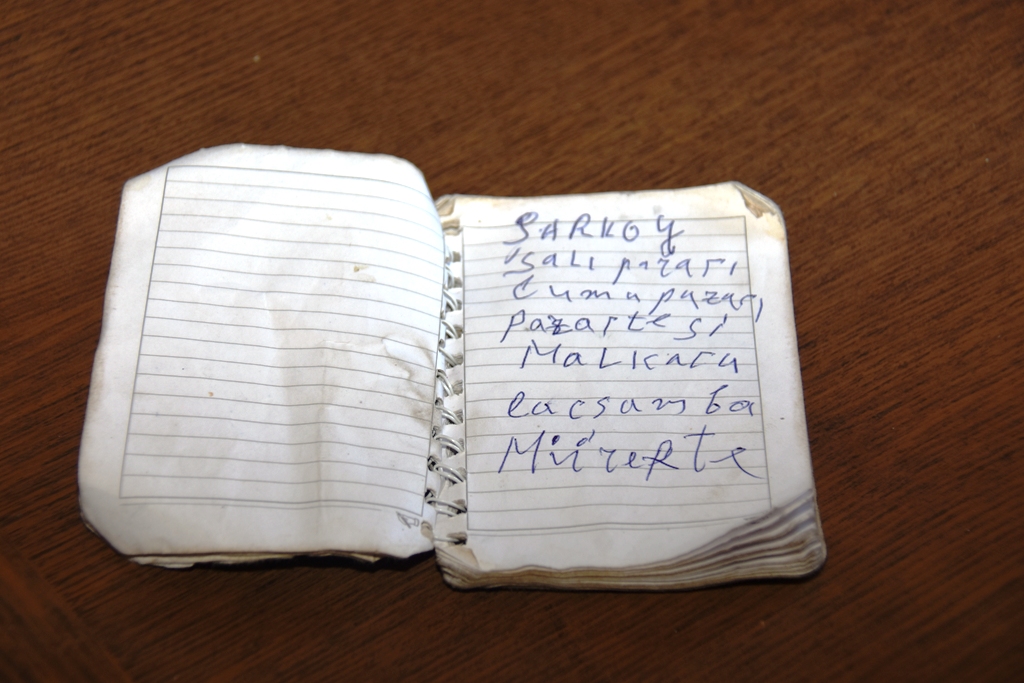 ŞARKOY
salı pazarı
Cuma pazarı
pazartesi
Malkara
çacşamba
Mürefte